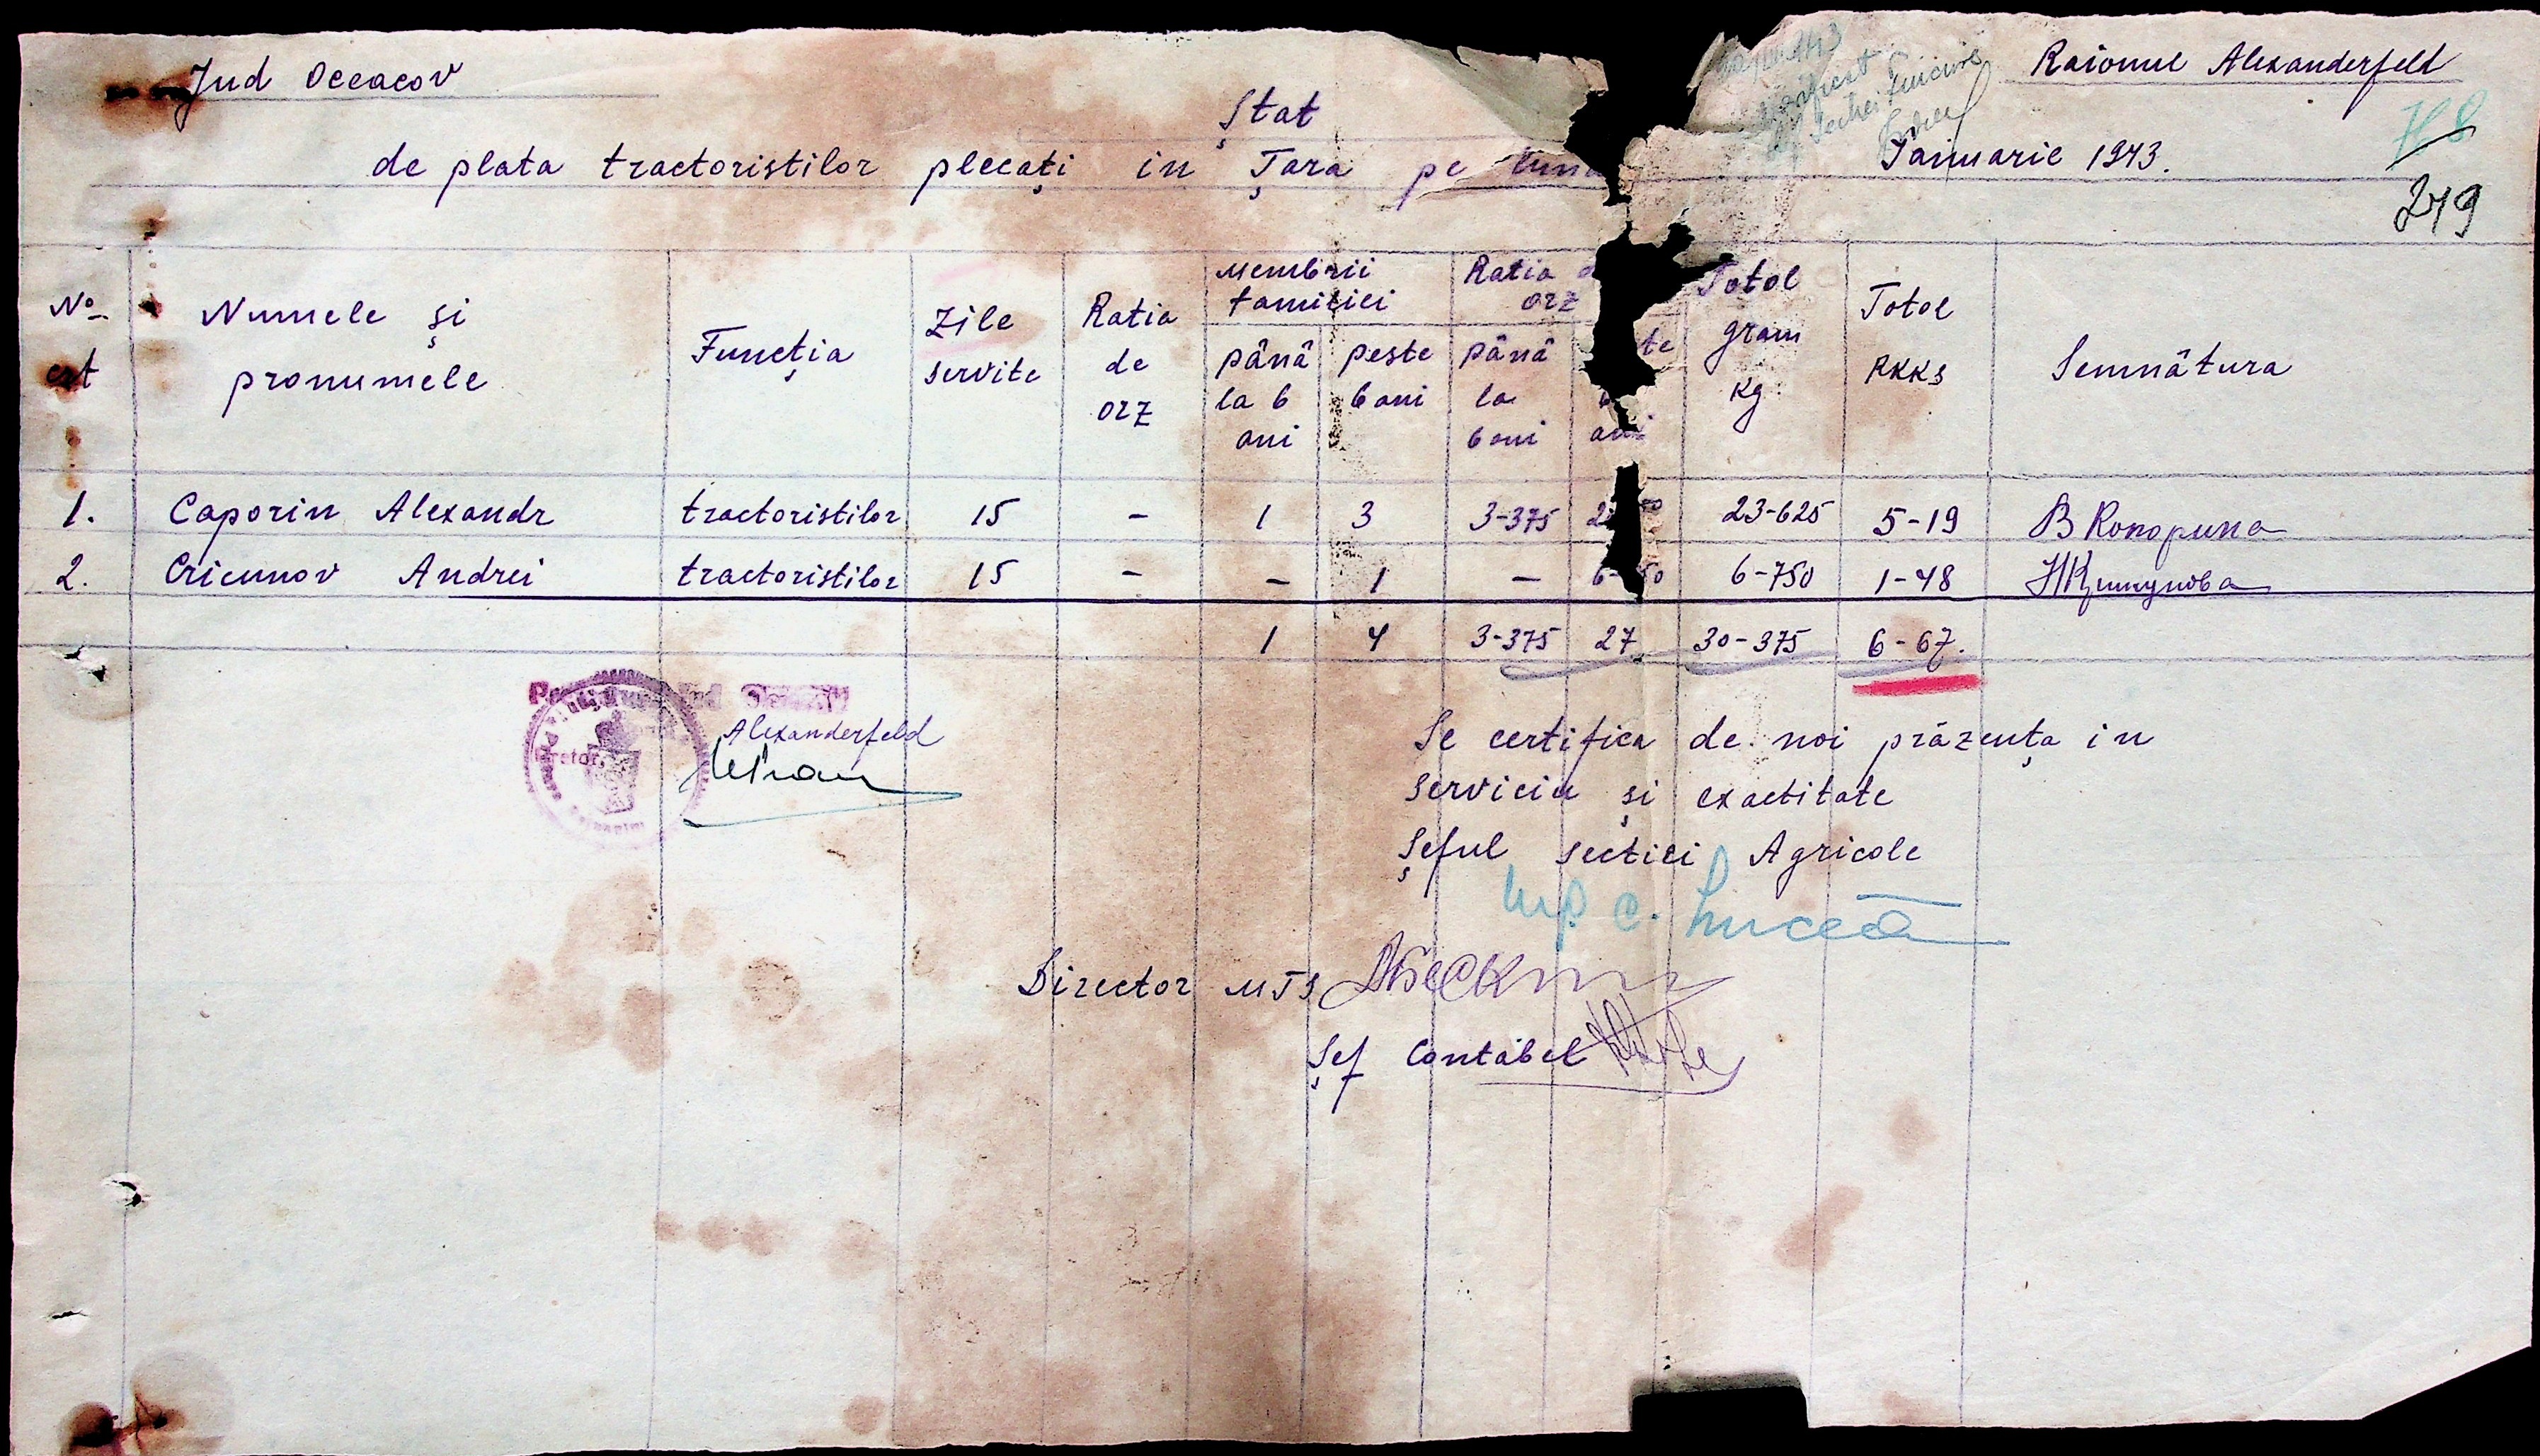 Jud Oceacov
Raionul Alexanderfeld
Ștat
de plata tractoriștilor plecați in Țara pe luna Ianuarie 1943.
249
No crt
Numele și pronumele
Funcția
Zile servite
Ratia de orz
Membrii familiei
până la 6 ani
peste 6 ani
Ratia orz
până la 6 ani
ani
Total gram kg
Total RKKS
Semnâtura
1. Caporin Alexandr tractoristilor 15 - 1 3 3-375 23-625 5-19 В Копорина
2. Cricunov Andrei tractoristilor 15 - - 1 - 6-750 1-48 Н Крикунова
1 4 3-375 27 30-375 6-67.
Alexanderfeld
Se certifica de noi prăzența in
serviciu și exactitate
Șeful sectiei Agricole
Director MTS
Șef Contabel